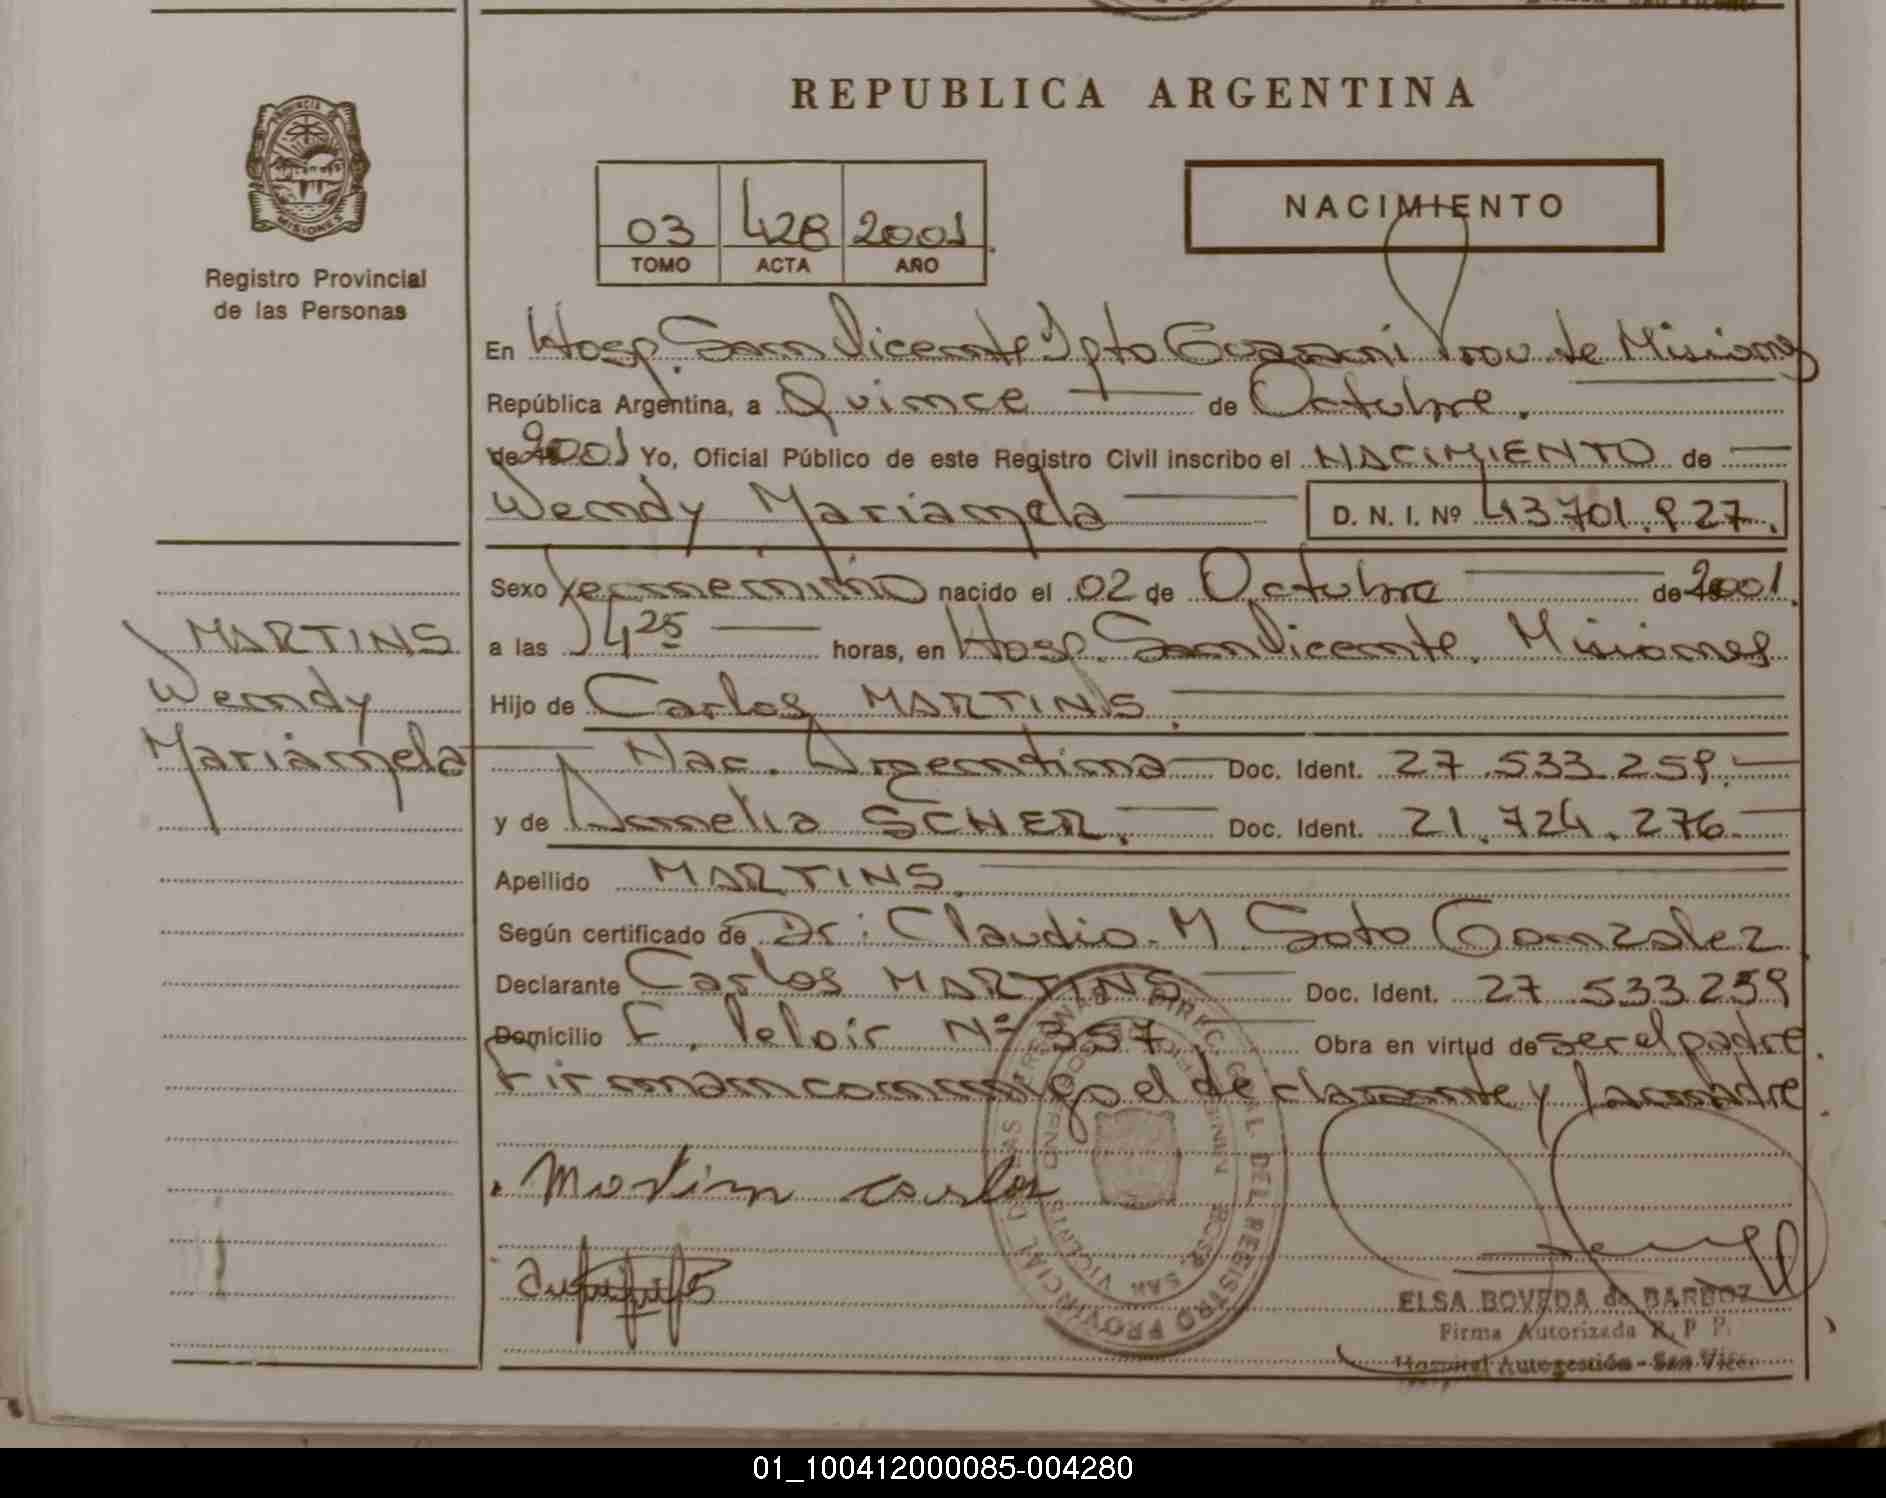 REPUBLICA ARGENTINA
PROVINCIA
MISIONES
Registro Provincial
de las Personas
03 428 2001
TOMO ACTA AÑO
NACIMIENTO
En Hosp. San Vicente Dpto Guarani Prov. de Misiones
República Argentina, a Quince de Octubre.
de 2001 Yo, Oficial Público de este Registro Civil inscribo el NACIMIENTO de
Wendy Mariangela D. N. I. Nº 43.701.927.
Sexo femenino nacido el 02 de Octubre de 2001.
a las 14 25 horas, en Hosp. San Vicente. Misiones
Hijo de Carlos MARTINS.
Nac. Argentina Doc. Ident. 27.533.259.
y de Amelia SCHER. Doc. Ident. 21.724.276
Apellido MARTINS.
Según certificado de Dr: Claudio M Soto Gonzalez
Declarante Carlos MARTINS Doc. Ident. 27 533 259
Domicilio F. Leloir Nº 357 Obra en virtud de ser el padre.
Firman conmigo el declarante y la madre.
MARTINS
Wendy
Mariangela
Martin Carlos
DIREC. GRAL. DEL REGISTRO PROVINCIAL DE LAS PERSONAS
HOSP. SAN VICENTE
ELSA BOVEDA de BARBOZ
Firma Autorizada R. P. P.
Hospital Autogestión - San Vice
01_100412000085-004280